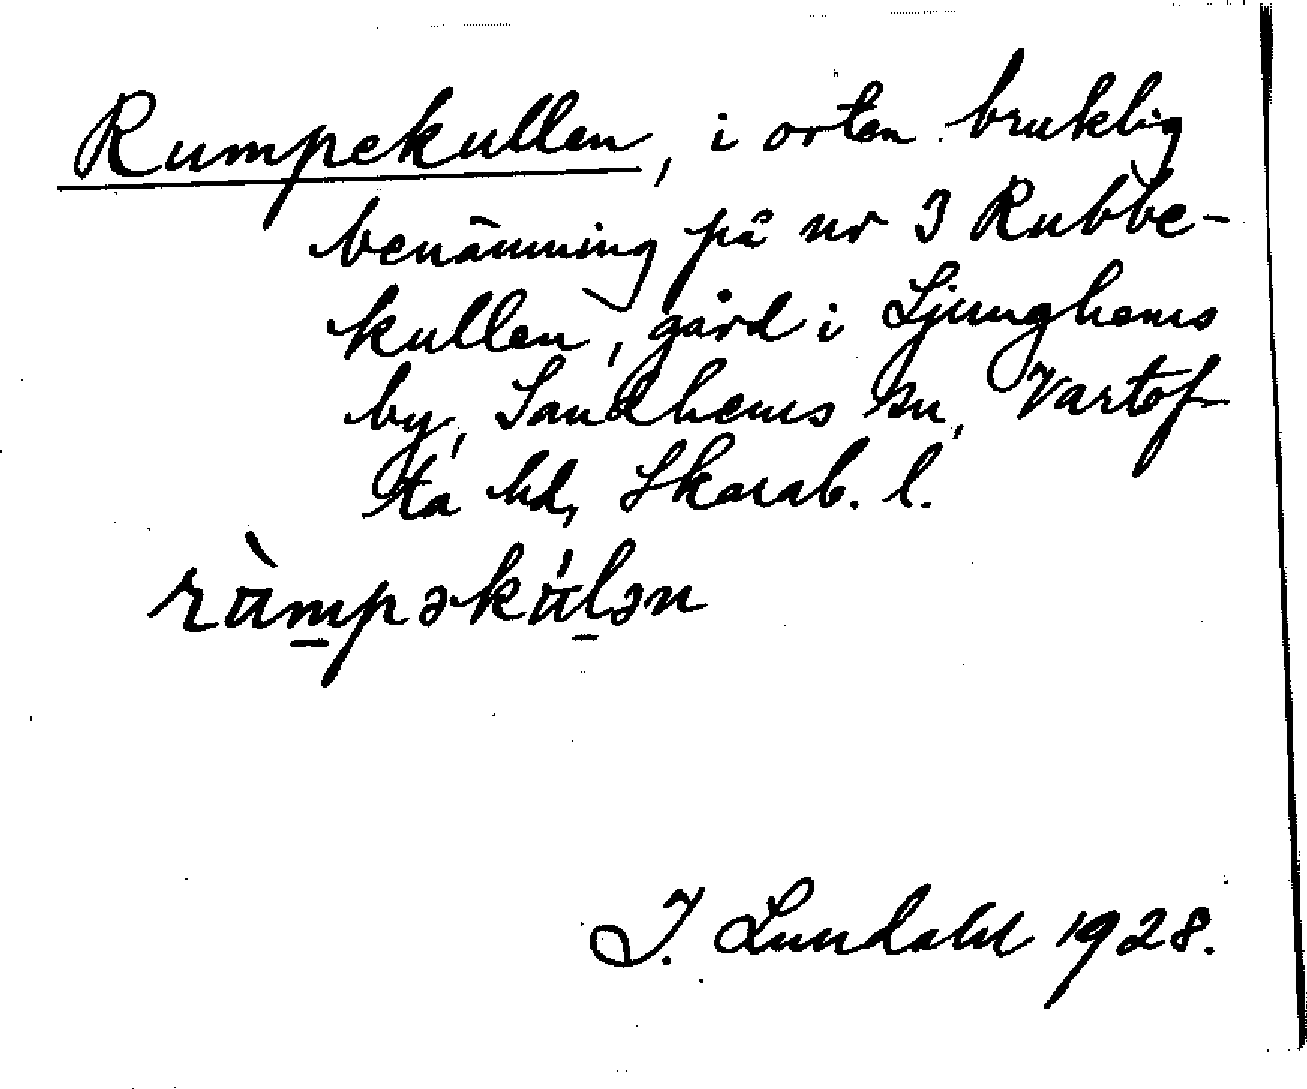 Rumpekullen, i orten bruklig
benämning på nr 3 Rubbe-
kullen, gård i Ljunghems
by, Sandhems sn, Vartof-
ta hd, Skarab. l.
rù̈m̲pəkú̈l̲ən
I. Lundahl 1928.